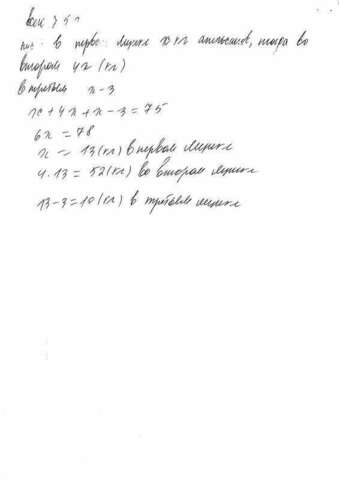 в перв. ящике x кг апельсинов, тогда во
втором 4x (кг)
в третьем x-3
x+4x+x-3=75
6x=78
x=13(кг) в первом ящике
4·13=52(кг) во втором ящике
13-3=10(кг) в третьем ящике